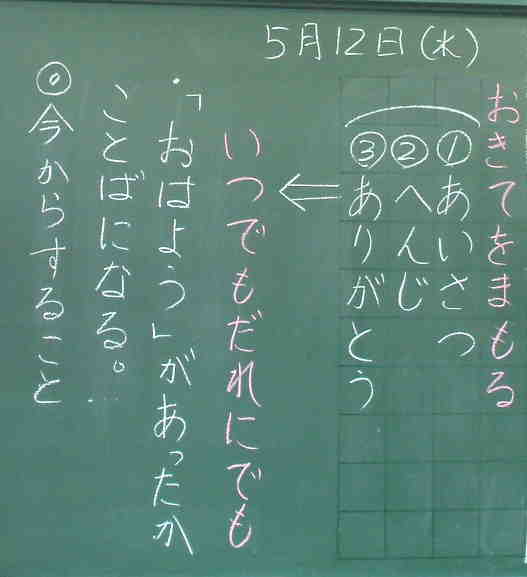 5月12日(水)
おきてをまもる
①あいさつ
②へんじ
③ありがとう
いつでもだれにでも
・「おはよう」があったか
ことばになる。
◎今からすること